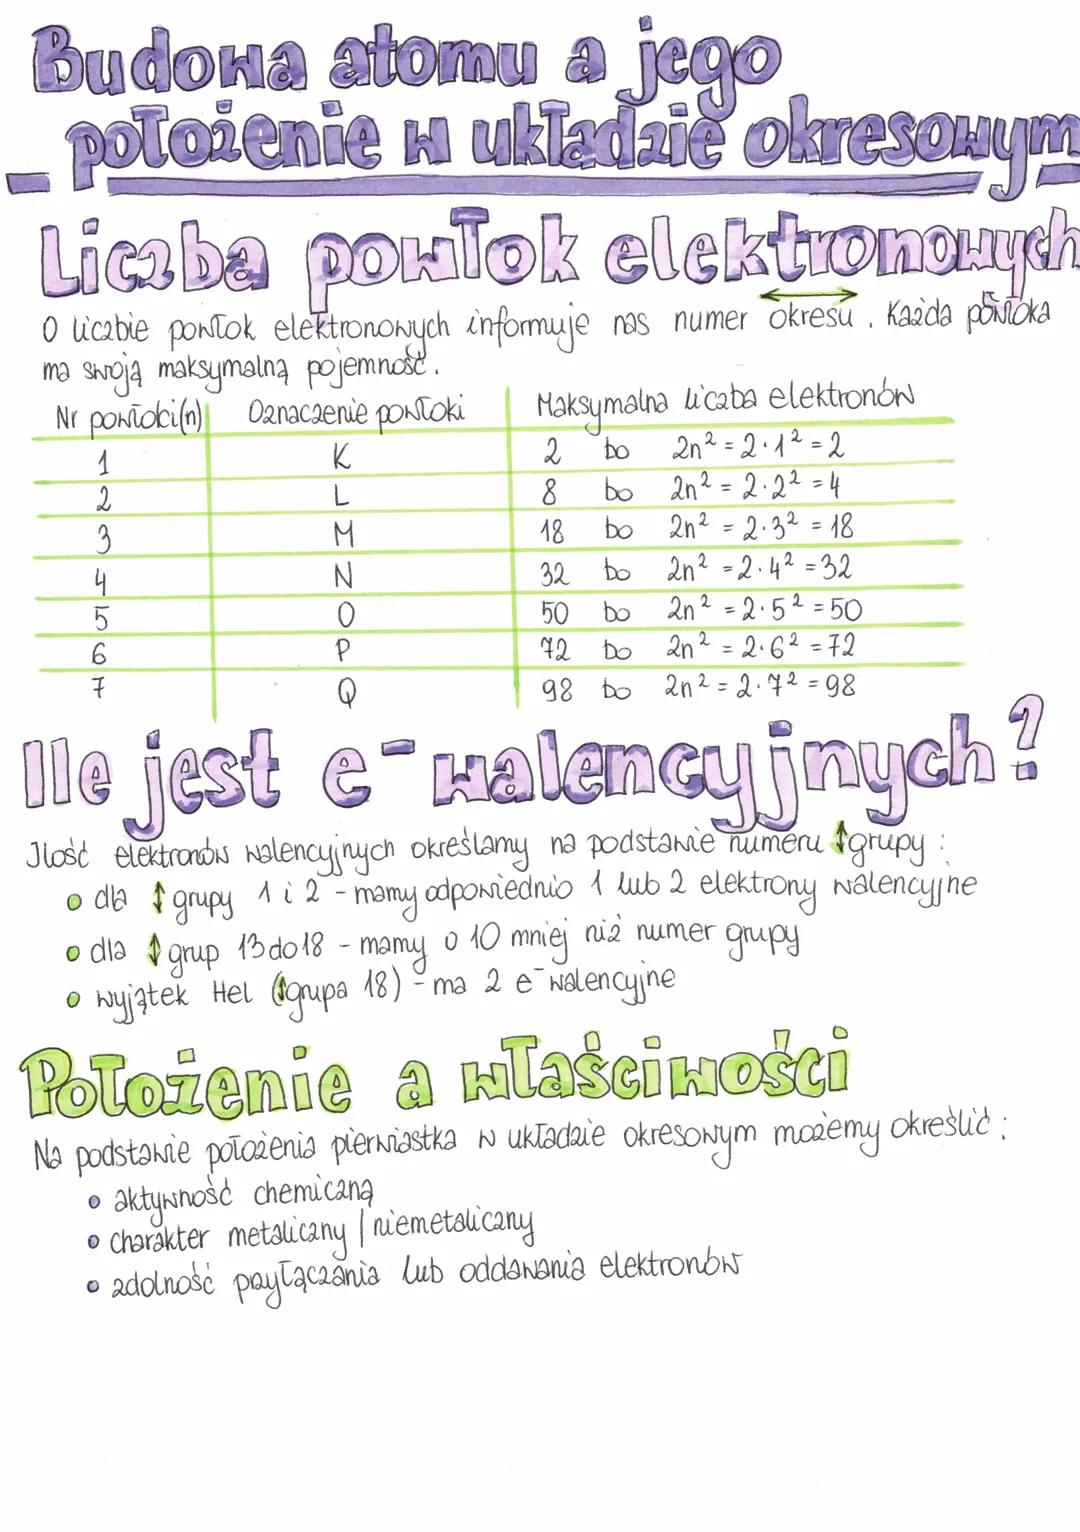 Budowa atomu a jego
położenie w układzie okresowym
Liczba powłok elektronowych
O liczbie powłok elektronowych informuje nas numer okresu. Każda powłoka
ma swoją maksymalną pojemność.
Nr powłoki(n) Oznaczenie powłoki Maksymalna liczba elektronów
1 K 2 bo 2n² = 2·1² = 2
2 L 8 bo 2n² = 2·2² = 4
3 M 18 bo 2n² = 2·3² = 18
4 N 32 bo 2n² = 2·4² = 32
5 O 50 bo 2n² = 2·5² = 50
6 P 72 bo 2n² = 2·6² = 72
7 Q 98 bo 2n² = 2·7² = 98
Ile jest e⁻ walencyjnych?
Ilość elektronów walencyjnych określamy na podstawie numeru ↕grupy:
• dla ↕ grupy 1 i 2 - mamy odpowiednio 1 lub 2 elektrony walencyjne
• dla ↕ grup 13 do 18 - mamy o 10 mniej niż numer grupy
• wyjątek Hel (↕grupa 18) - ma 2 e⁻ walencyjne
Położenie a właściwości
Na podstawie położenia pierwiastka w układzie okresowym możemy określić:
• aktywność chemiczną
• charakter metaliczny | niemetaliczny
• zdolność przyłączania lub oddawania elektronów